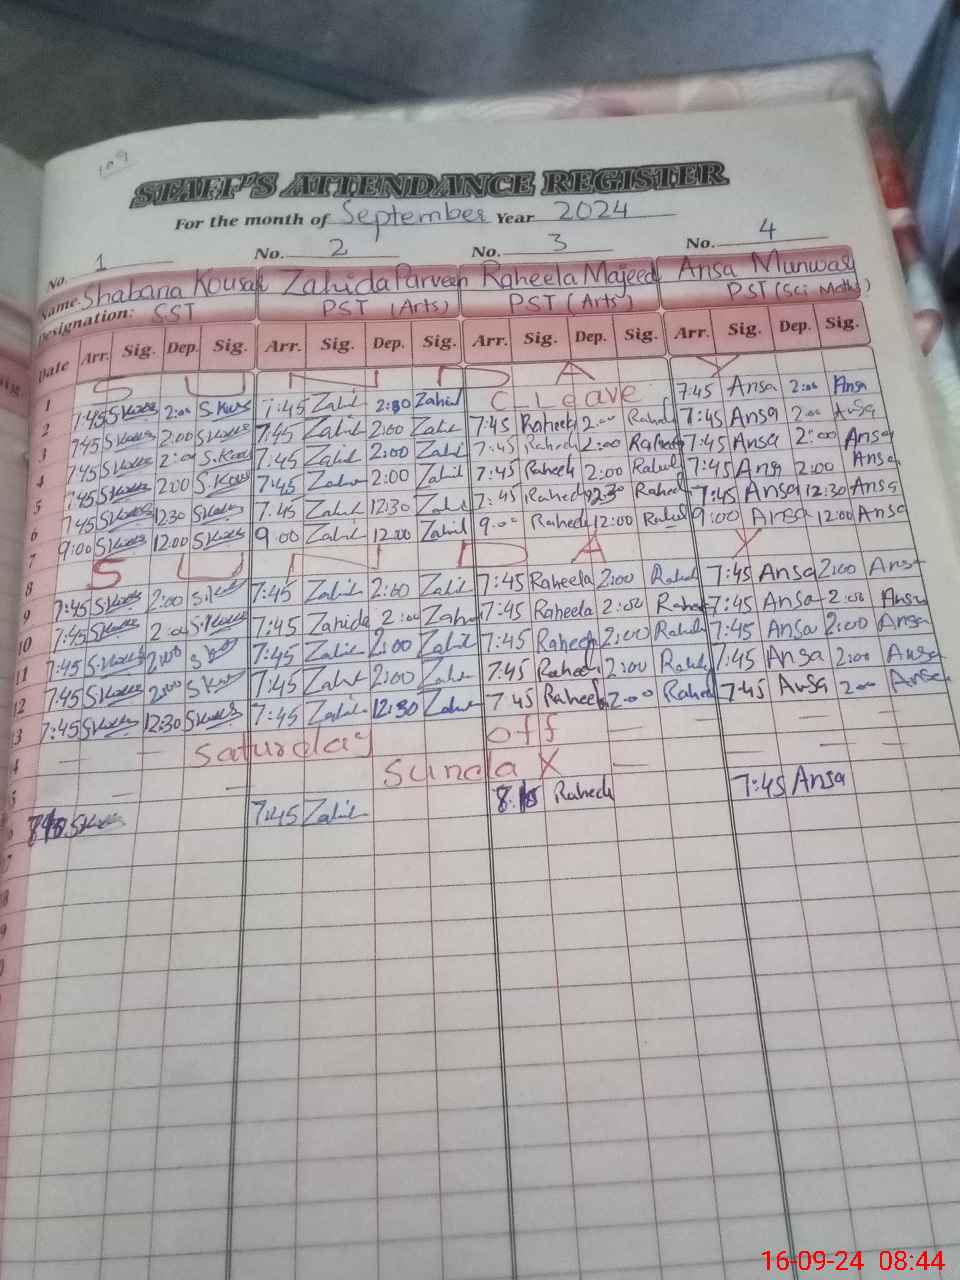 109
STAFF'S ATTENDANCE REGISTER
For the month of September Year 2024
No. 1 No. 2 No. 3 No. 4
Name. Shabana Kousar Zahida Parveen Raheela Majeed Ansa Munwar
Designation: SST PST (Arts) PST (Arts) PST (Sci Maths)
Date Arr. Sig. Dep. Sig. Arr. Sig. Dep. Sig. Arr. Sig. Dep. Sig. Arr. Sig. Dep. Sig.
1 S U N D A Y
2 7:45 S.Kous 2:00 S.Kous 7:45 Zahid 2:00 Zahid C Leave 7:45 Ansa 2:00 Ansa
3 7:45 S.Kous 2:00 S.Kous 7:45 Zahid 2:00 Zahid 7:45 Raheela 2:00 Raheel 7:45 Ansa 2:00 Ansa
4 7:45 S.Kous 2:00 S.Kous 7:45 Zahid 2:00 Zahid 7:45 Raheela 2:00 Raheela 7:45 Ansa 2:00 Ansa
5 7:45 S.Kous 2:00 S.Kous 7:45 Zahid 2:00 Zahid 7:45 Raheela 2:00 Raheel 7:45 Ansa 2:00 Ansa
6 7:45 S.Kous 12:30 S.Kous 7:45 Zahid 12:30 Zahid 7:45 Raheela 12:30 Raheel 7:45 Ansa 12:30 Ansa
7 9:00 S.Kous 12:00 S.Kous 9:00 Zahid 12:00 Zahid 9:00 Raheela 12:00 Raheel 9:00 Ansa 12:00 Ansa
8 S U N D A Y
9 7:45 S.Kous 2:00 S.Kous 7:45 Zahid 2:00 Zahid 7:45 Raheela 2:00 Raheel 7:45 Ansa 2:00 Ansa
10 7:45 S.Kous 2:00 S.Kous 7:45 Zahida 2:00 Zahid 7:45 Raheela 2:00 Raheel 7:45 Ansa 2:00 Ansa
11 7:45 S.Kous 2:00 S.Kous 7:45 Zahid 2:00 Zahid 7:45 Raheela 2:00 Raheel 7:45 Ansa 2:00 Ansa
12 7:45 S.Kous 2:00 S.Kous 7:45 Zahid 2:00 Zahid 7:45 Raheela 2:00 Raheel 7:45 Ansa 2:00 Ansa
3 7:45 S.Kous 12:30 S.Kous 7:45 Zahid 12:30 Zahid 7:45 Raheela 2:00 Raheel 7:45 Ansa 2:00 Ansa
4 — — Saturday off — — —
5 — Sunday — — —
6 S.Kous 7:45 Zahid 8:15 Raheela 7:45 Ansa
7
18
9
16-09-24 08:44